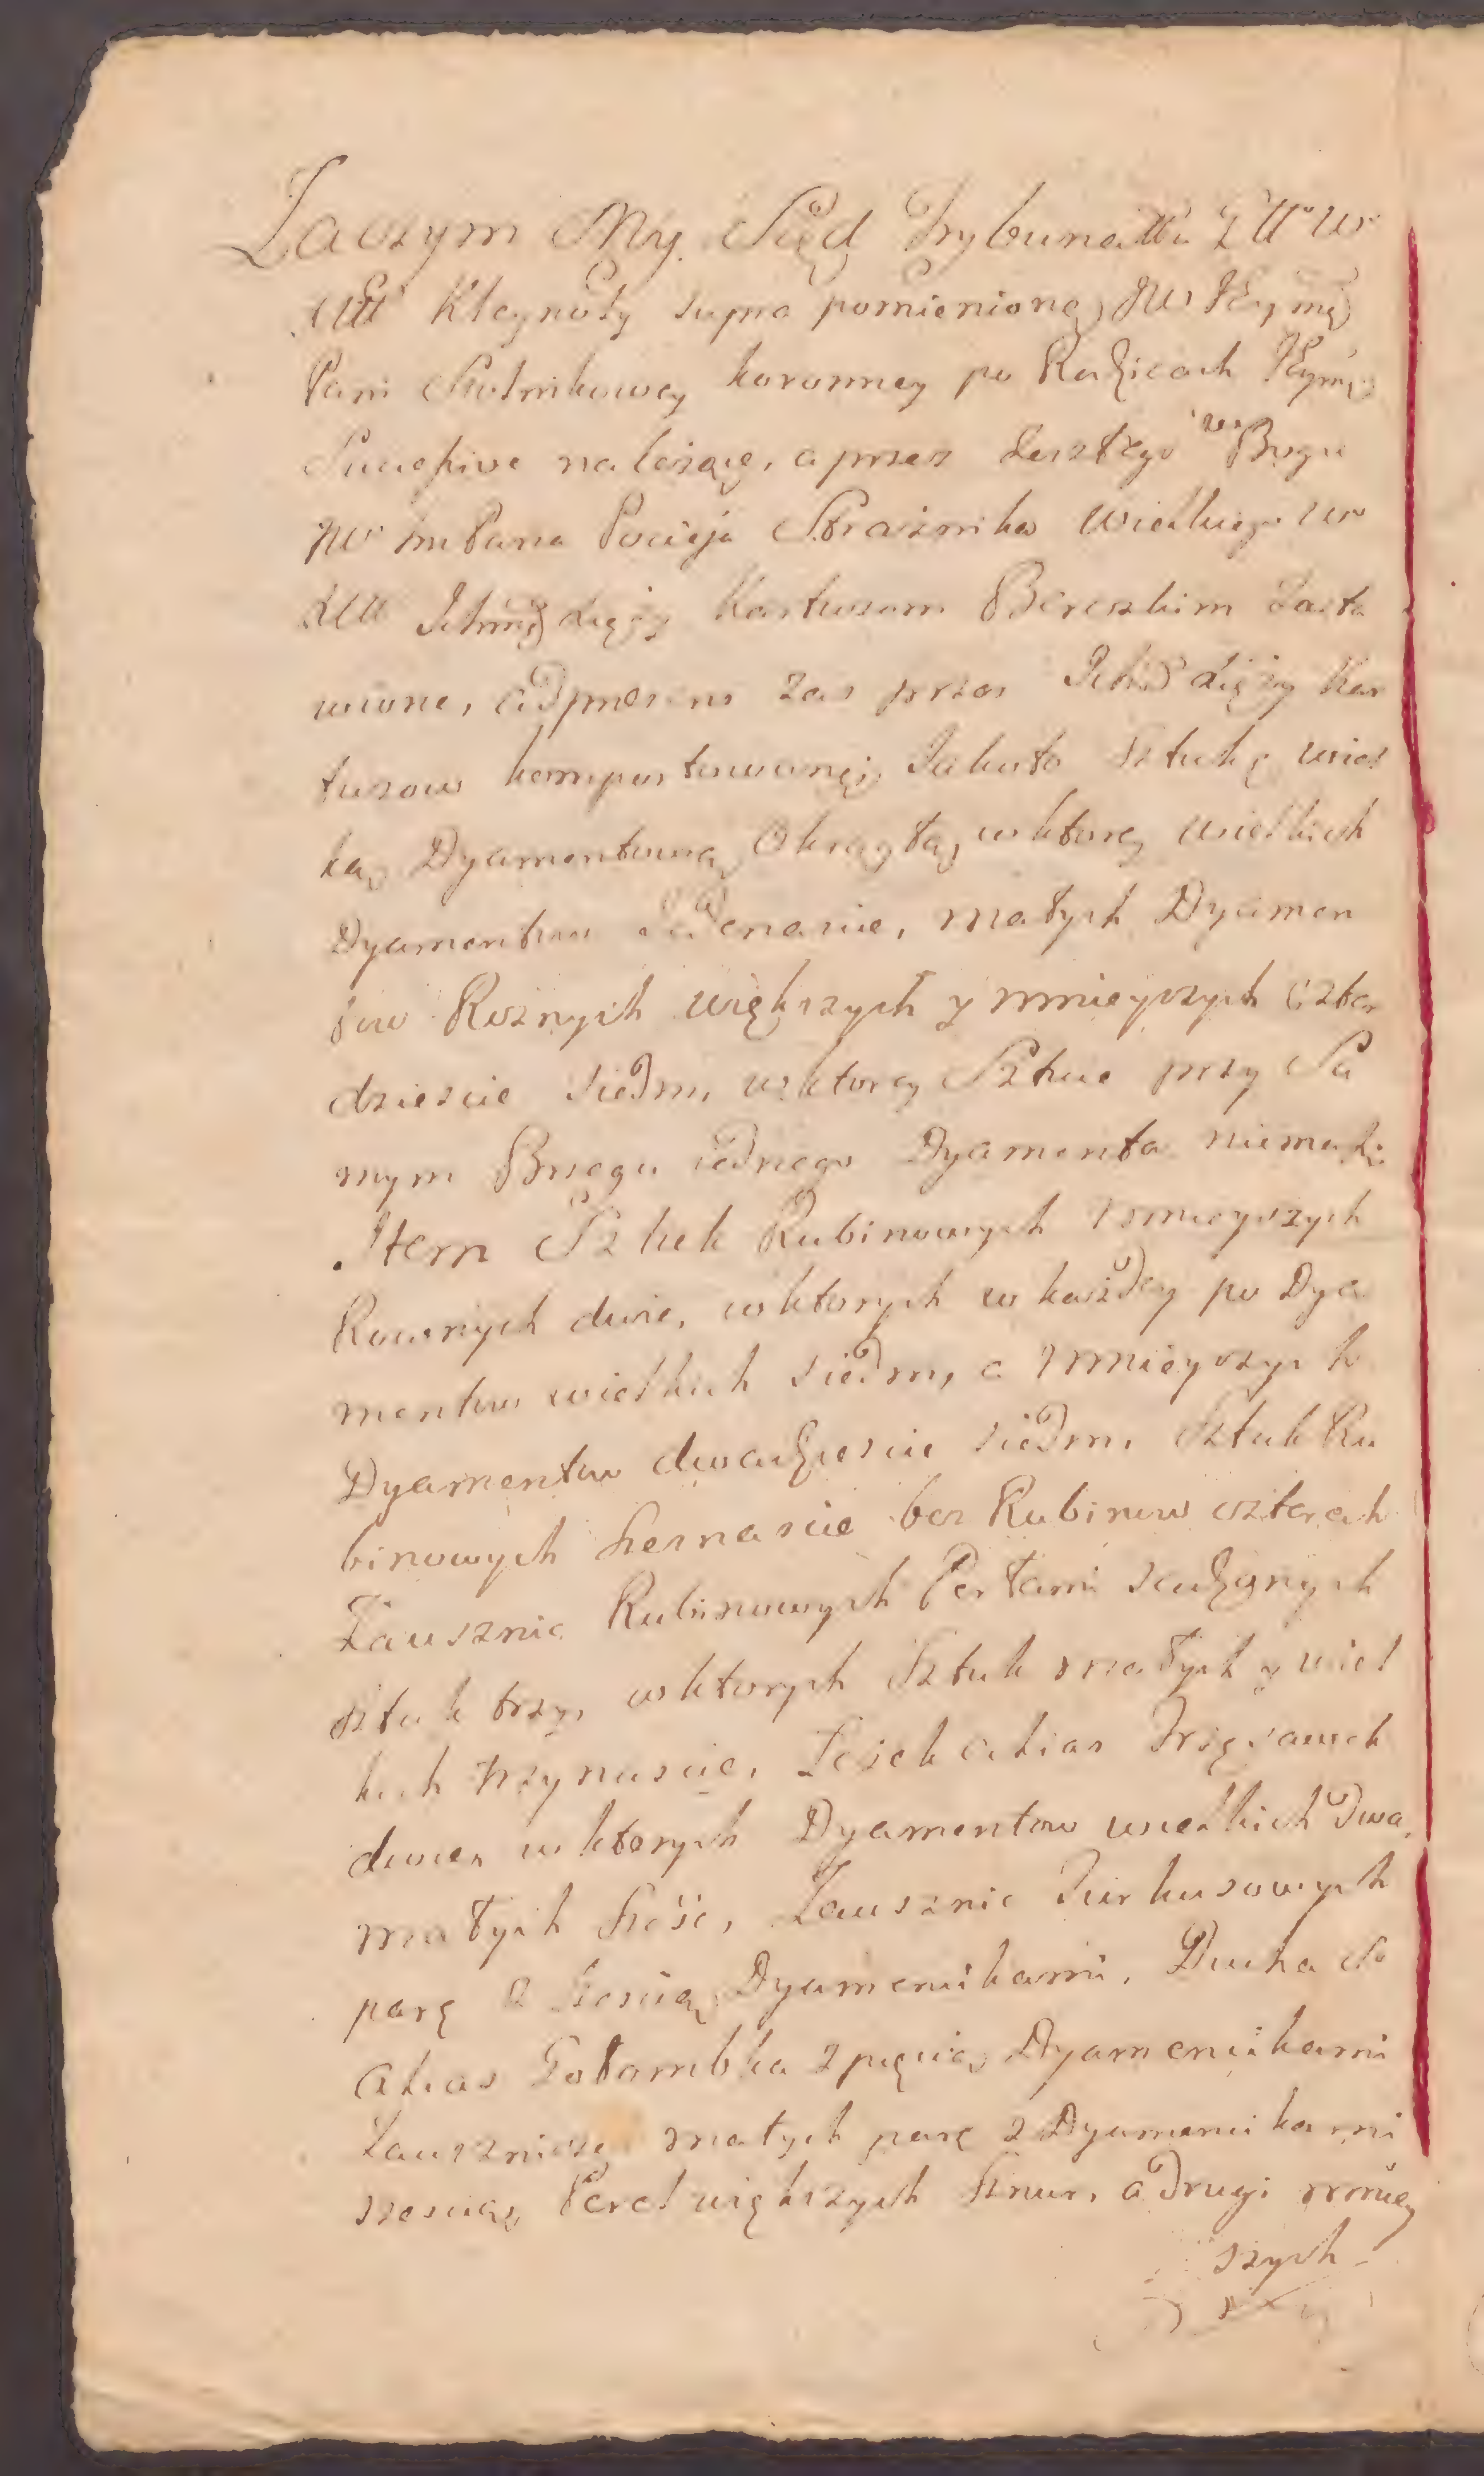 Zaczym My Sąd Trybunału Gł w
WXL Kleynoty supra pomienione JW JEymę
Pani Stolnikowey koronney po Rodzicach JEymę
Successive należące, a przez Zeszłego w Bogu
JW Im Pana Pocieja Strażnika wielkiego w
XLit Ichmę Xięży Kartuzom Bereskim Zasta
wione, adpraesens zas przez Ichm Xięży Kar
tuzow komportowane, Jakoto Sztukę wiel
ką Dyamentową Okrągłą w ktorey wielkich
Dyamentow Jedenascie, małych Dyamen
tow Roznych większych y mnieyszych Czter
dziescie siedm, w ktorey Sztuce przy Sa
mym Brzegu iednego Dyamenta niemasz
Item Sztuk Rubinowych mnieyszych
Rownych dwie, w ktorych w każdey po Dya
mentow wielkich siedm, a mnieyszych
Dyamentow dwadziescie siedm, Sztuk Ru
binowych szesnascie bez Rubinow czterech
Zausznic Rubinowych Perłami sadzonych
sztuk trzy, w ktorych Sztuk małych y wiel
kich trzynascie, Łezek alias Trzęsawek
dwie, w ktorych Dyamentow wielkich dwa,
małych sześć, Zausznic Turkusowych
parę z szescią Dyamencikami, Ducha S
alias Gołombka z pięcią Dyamencikami
Zauszniczę małych parę z Dyamencikami
szescią, Pereł większych sznur, a drugi mniey
szych